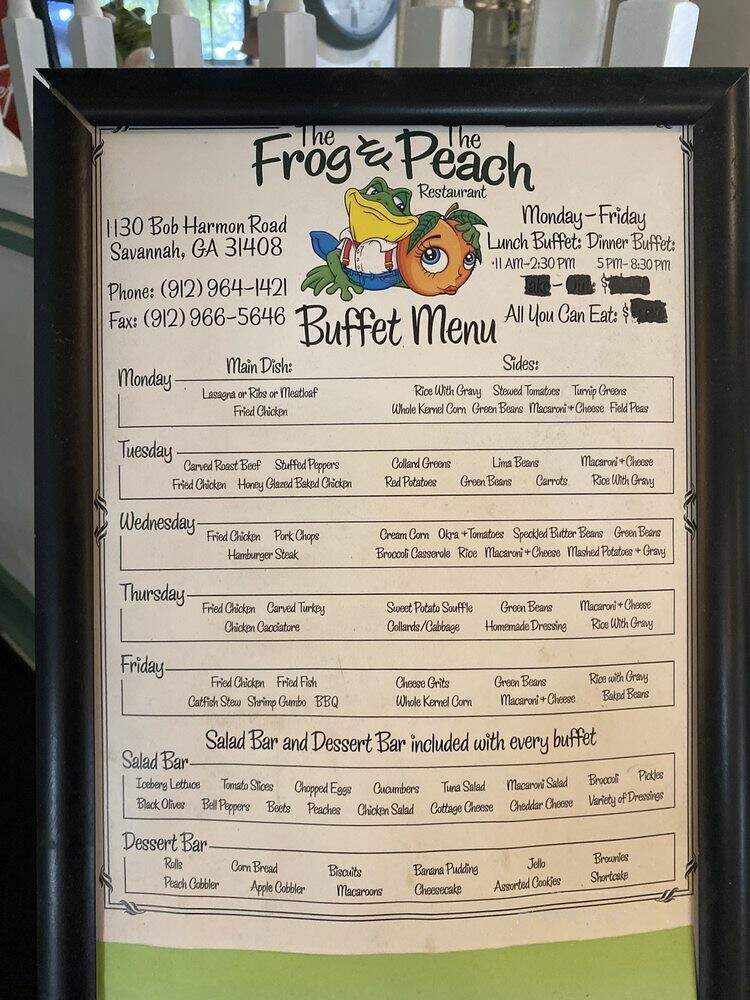 The The
Frog & Peach
Restaurant
1130 Bob Harmon Road
Savannah, GA 31408
Phone: (912) 964-1421
Fax: (912) 966-5646
Monday-Friday
Lunch Buffet: Dinner Buffet:
11 AM-2:30 PM 5 PM-8:30 PM
Take - Out: $
All You Can Eat: $
Buffet Menu
Main Dish: Sides:
Monday
Lasagna or Ribs or Meatloaf Rice With Gravy Stewed Tomatoes Turnip Greens
Fried Chicken Whole Kernel Corn Green Beans Macaroni + Cheese Field Peas
Tuesday
Carved Roast Beef Stuffed Peppers Collard Greens Lima Beans Macaroni + Cheese
Fried Chicken Honey Glazed Baked Chicken Red Potatoes Green Beans Carrots Rice With Gravy
Wednesday
Fried Chicken Pork Chops Cream Corn Okra + Tomatoes Speckled Butter Beans Green Beans
Hamburger Steak Broccoli Casserole Rice Macaroni + Cheese Mashed Potatoes + Gravy
Thursday
Fried Chicken Carved Turkey Sweet Potato Souffle Green Beans Macaroni + Cheese
Chicken Cacciatore Collards/Cabbage Homemade Dressing Rice With Gravy
Friday
Fried Chicken Fried Fish Cheese Grits Green Beans Rice with Gravy
Catfish Stew Shrimp Gumbo BBQ Whole Kernel Corn Macaroni + Cheese Baked Beans
Salad Bar and Dessert Bar included with every buffet
Salad Bar
Iceberg Lettuce Tomato Slices Chopped Eggs Cucumbers Tuna Salad Macaroni Salad Broccoli Pickles
Black Olives Bell Peppers Beets Peaches Chicken Salad Cottage Cheese Cheddar Cheese Variety of Dressings
Dessert Bar
Rolls Corn Bread Biscuits Banana Pudding Jello Brownies
Peach Cobbler Apple Cobbler Macaroons Cheesecake Assorted Cookies Shortcake